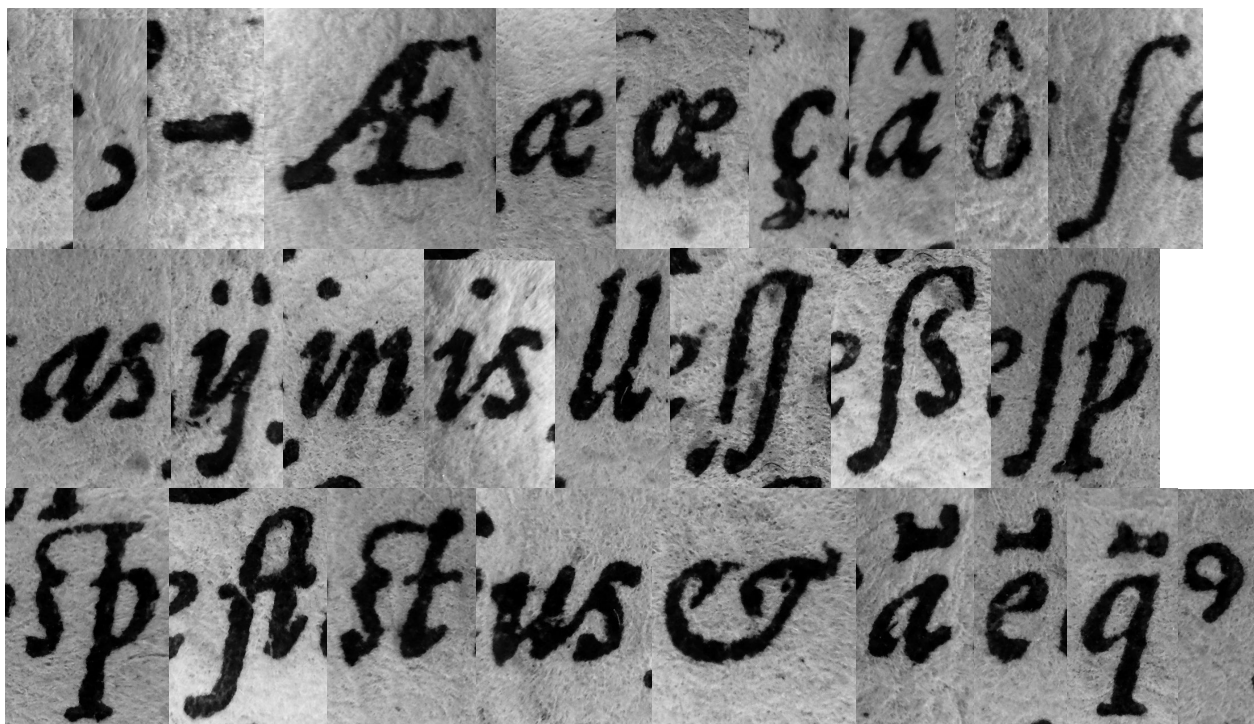 . , - Æ æ æ ç â ô ſ
as ÿ im is ll ſſ ſs ſp
sp ſt st us & ã ẽ q̃ ꝰ